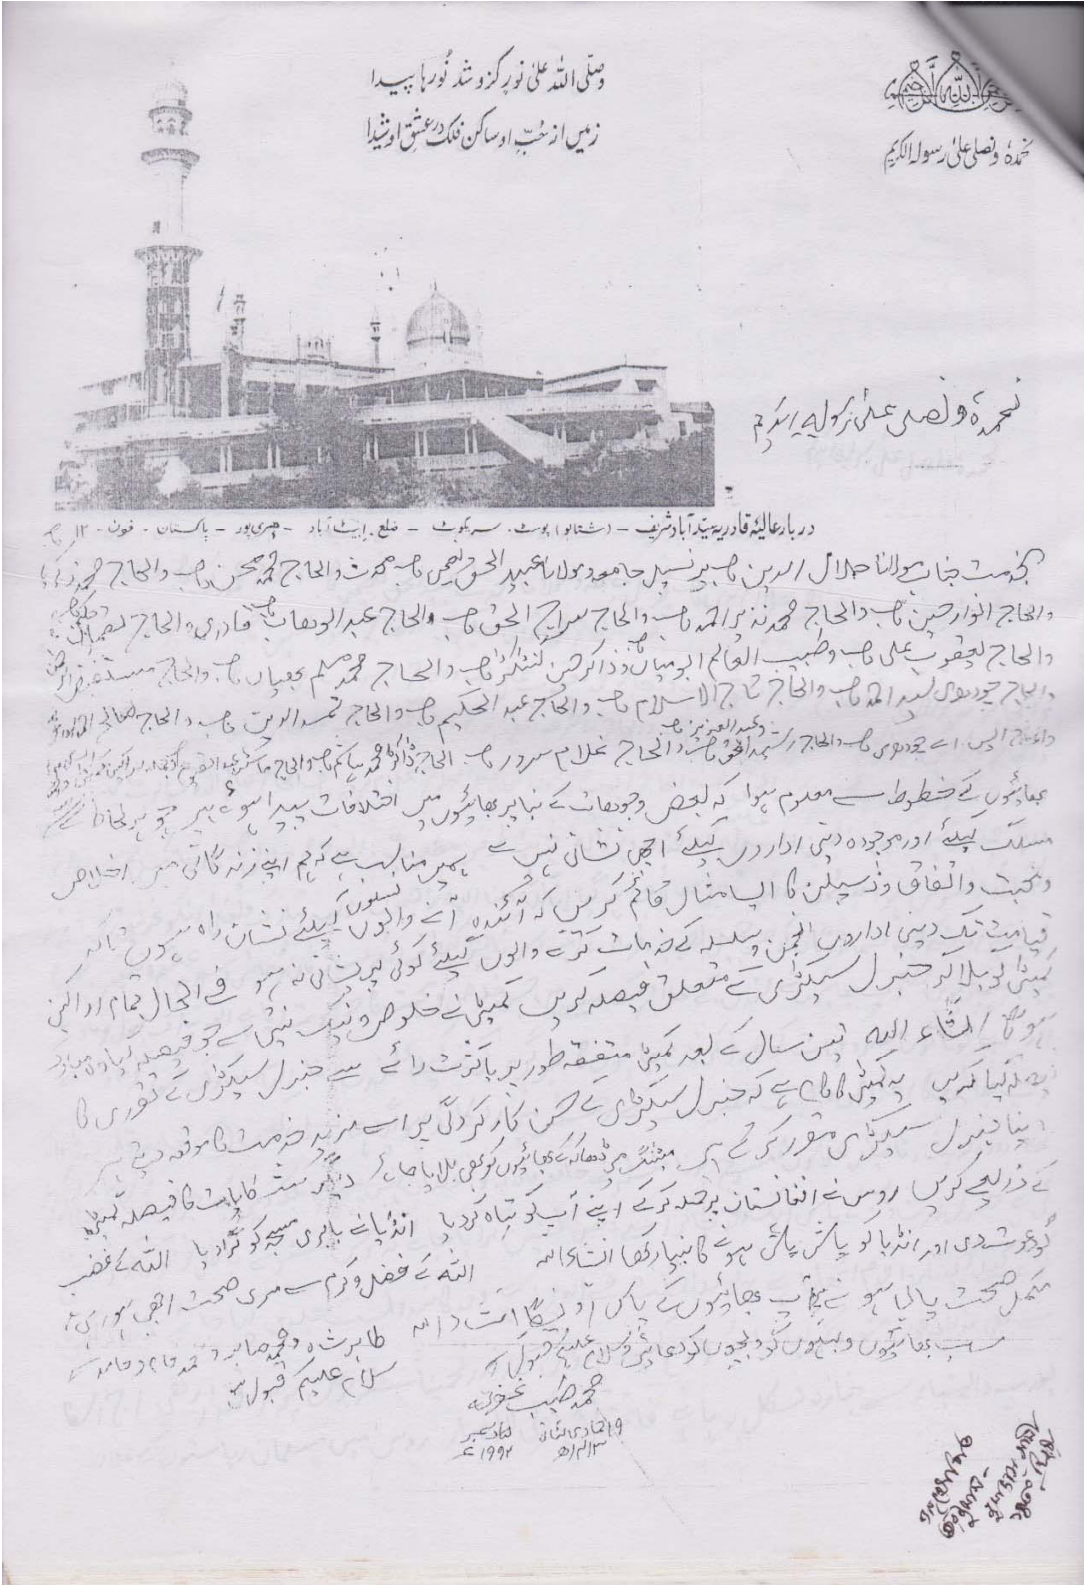 وصلّی اللہ علیٰ نورٍ کزو شد نُورہا پیدا
زمیں از حُبِّ او ساکن فلک در عشقِ او شیدا
نحمدہٗ ونصلی علیٰ رسولہ الکریم
نحمدہ ونصلی علیٰ رسولہ الکریم
دربار عالیہ قادریہ سیّد آباد شریف - (شتالو) پوسٹ، سریکوٹ - ضلع، ایبٹ آباد - ہری پور - پاکستان - فون - ۱۲
بخدمت جناب مولانا جلال الدین صاحب پرنسپل جامعہ و مولانا عبید الحق نعیمی صاحب محدث والحاج محمد محسن صاحب والحاج محمد زکریا
والحاج انوار حسین صاحب والحاج محمد نذیر احمد صاحب والحاج سراج الحق صاحب والحاج عبد الوھاب صاحب قادری والحاج
والحاج یعقوب علی صاحب و طبیب العالم ابو میاں و ذاکر حسین کنٹریکٹر صاحب والحاج محمد مسلم بھیاں صاحب والحاج
والحاج چودھری سید احمد صاحب والحاج تاج الاسلام صاحب والحاج عبد الحکیم صاحب والحاج شمس الدین صاحب والحاج
والحاج ایس اے چودھری صاحب والحاج رشید الحق صاحب و عبد العزیز صاحب والحاج غلام سرور صاحب الحاج ڈاکٹر محمد ہاشم صاحب والحاج ماسٹر
بھائیوں کے خطوط سے معلوم ہوا کہ بعض وجوھات کے بنا پر بھائیوں میں اختلافات پیدا ہوئے ہیں جو ہر لحاظ سے
مسلک کیلئے اور موجودہ دینی اداروں کیلئے اچھی نشانی نہیں ہے ہمیں مناسب ہے کہ ہم اپنے زندگانی میں اخلاص
و محبت و اتفاق و ڈسپلن کا ایسا مثال قائم کریں کہ آئندہ آنے والوں نسلوں کیلئے نشان راہ ہوں تاکہ
قیامت تک دینی اداروں انجمن و سلسلہ کے خدمات کرنے والوں کیلئے کوئی پریشانی نہ ہو فی الحال تمام اراکین
کمیٹی کو بلا کر جنرل سیکٹری کے متعلق فیصلہ کریں کمیٹی نے خلوص و نیک نیتی سے جو فیصلہ کیا وہ مبارک
ہوگا انشاء اللہ تین سال کے بعد کمیٹی متفقہ طور پر یا کثرت رائے سے جنرل سیکٹری کے تقرری کا
فیصلہ کیا کریں یہ کمیٹی کا کام ہے کہ جنرل سیکٹری کے حسن کارکردگی پر اسے مزید خدمت کا موقعہ دیتے ہیں
یا نیا جنرل سیکٹری مقرر کرتے ہیں میٹنگ میں ڈھاکہ کے بھائیوں کو بھی بلایا جائے دیگر شکایات کا فیصلہ کمیٹی
کے ذریعے کریں روس نے افغانستان پر حملہ کرکے اپنے آپ کو تباہ کردیا انڈیا نے بابری مسجد کو گرادیا اللہ کے غضب
کو دعوت دی اور انڈیا کو پاش پاش ہونے کا بنیاد رکھا انشاء اللہ اللہ کے فضل و کرم سے میری صحت اچھی ہورہی ہے
مکمل صحت یاب ہونے پر آپ بھائیوں کے پاس آونگا انشاء اللہ
سب بھائیوں و بہنوں کو و بچوں کو دعائیں و سلام علیکم قبول ہو
طاہر شاہ و محمد صابر و محمد قاسم و حامد سے
سلام علیکم قبول ہو
محمد طیب غفرلہ
۱۹ جمادی الثانی
۱۴۱۳ھ
دسمبر
۱۹۹۲ء